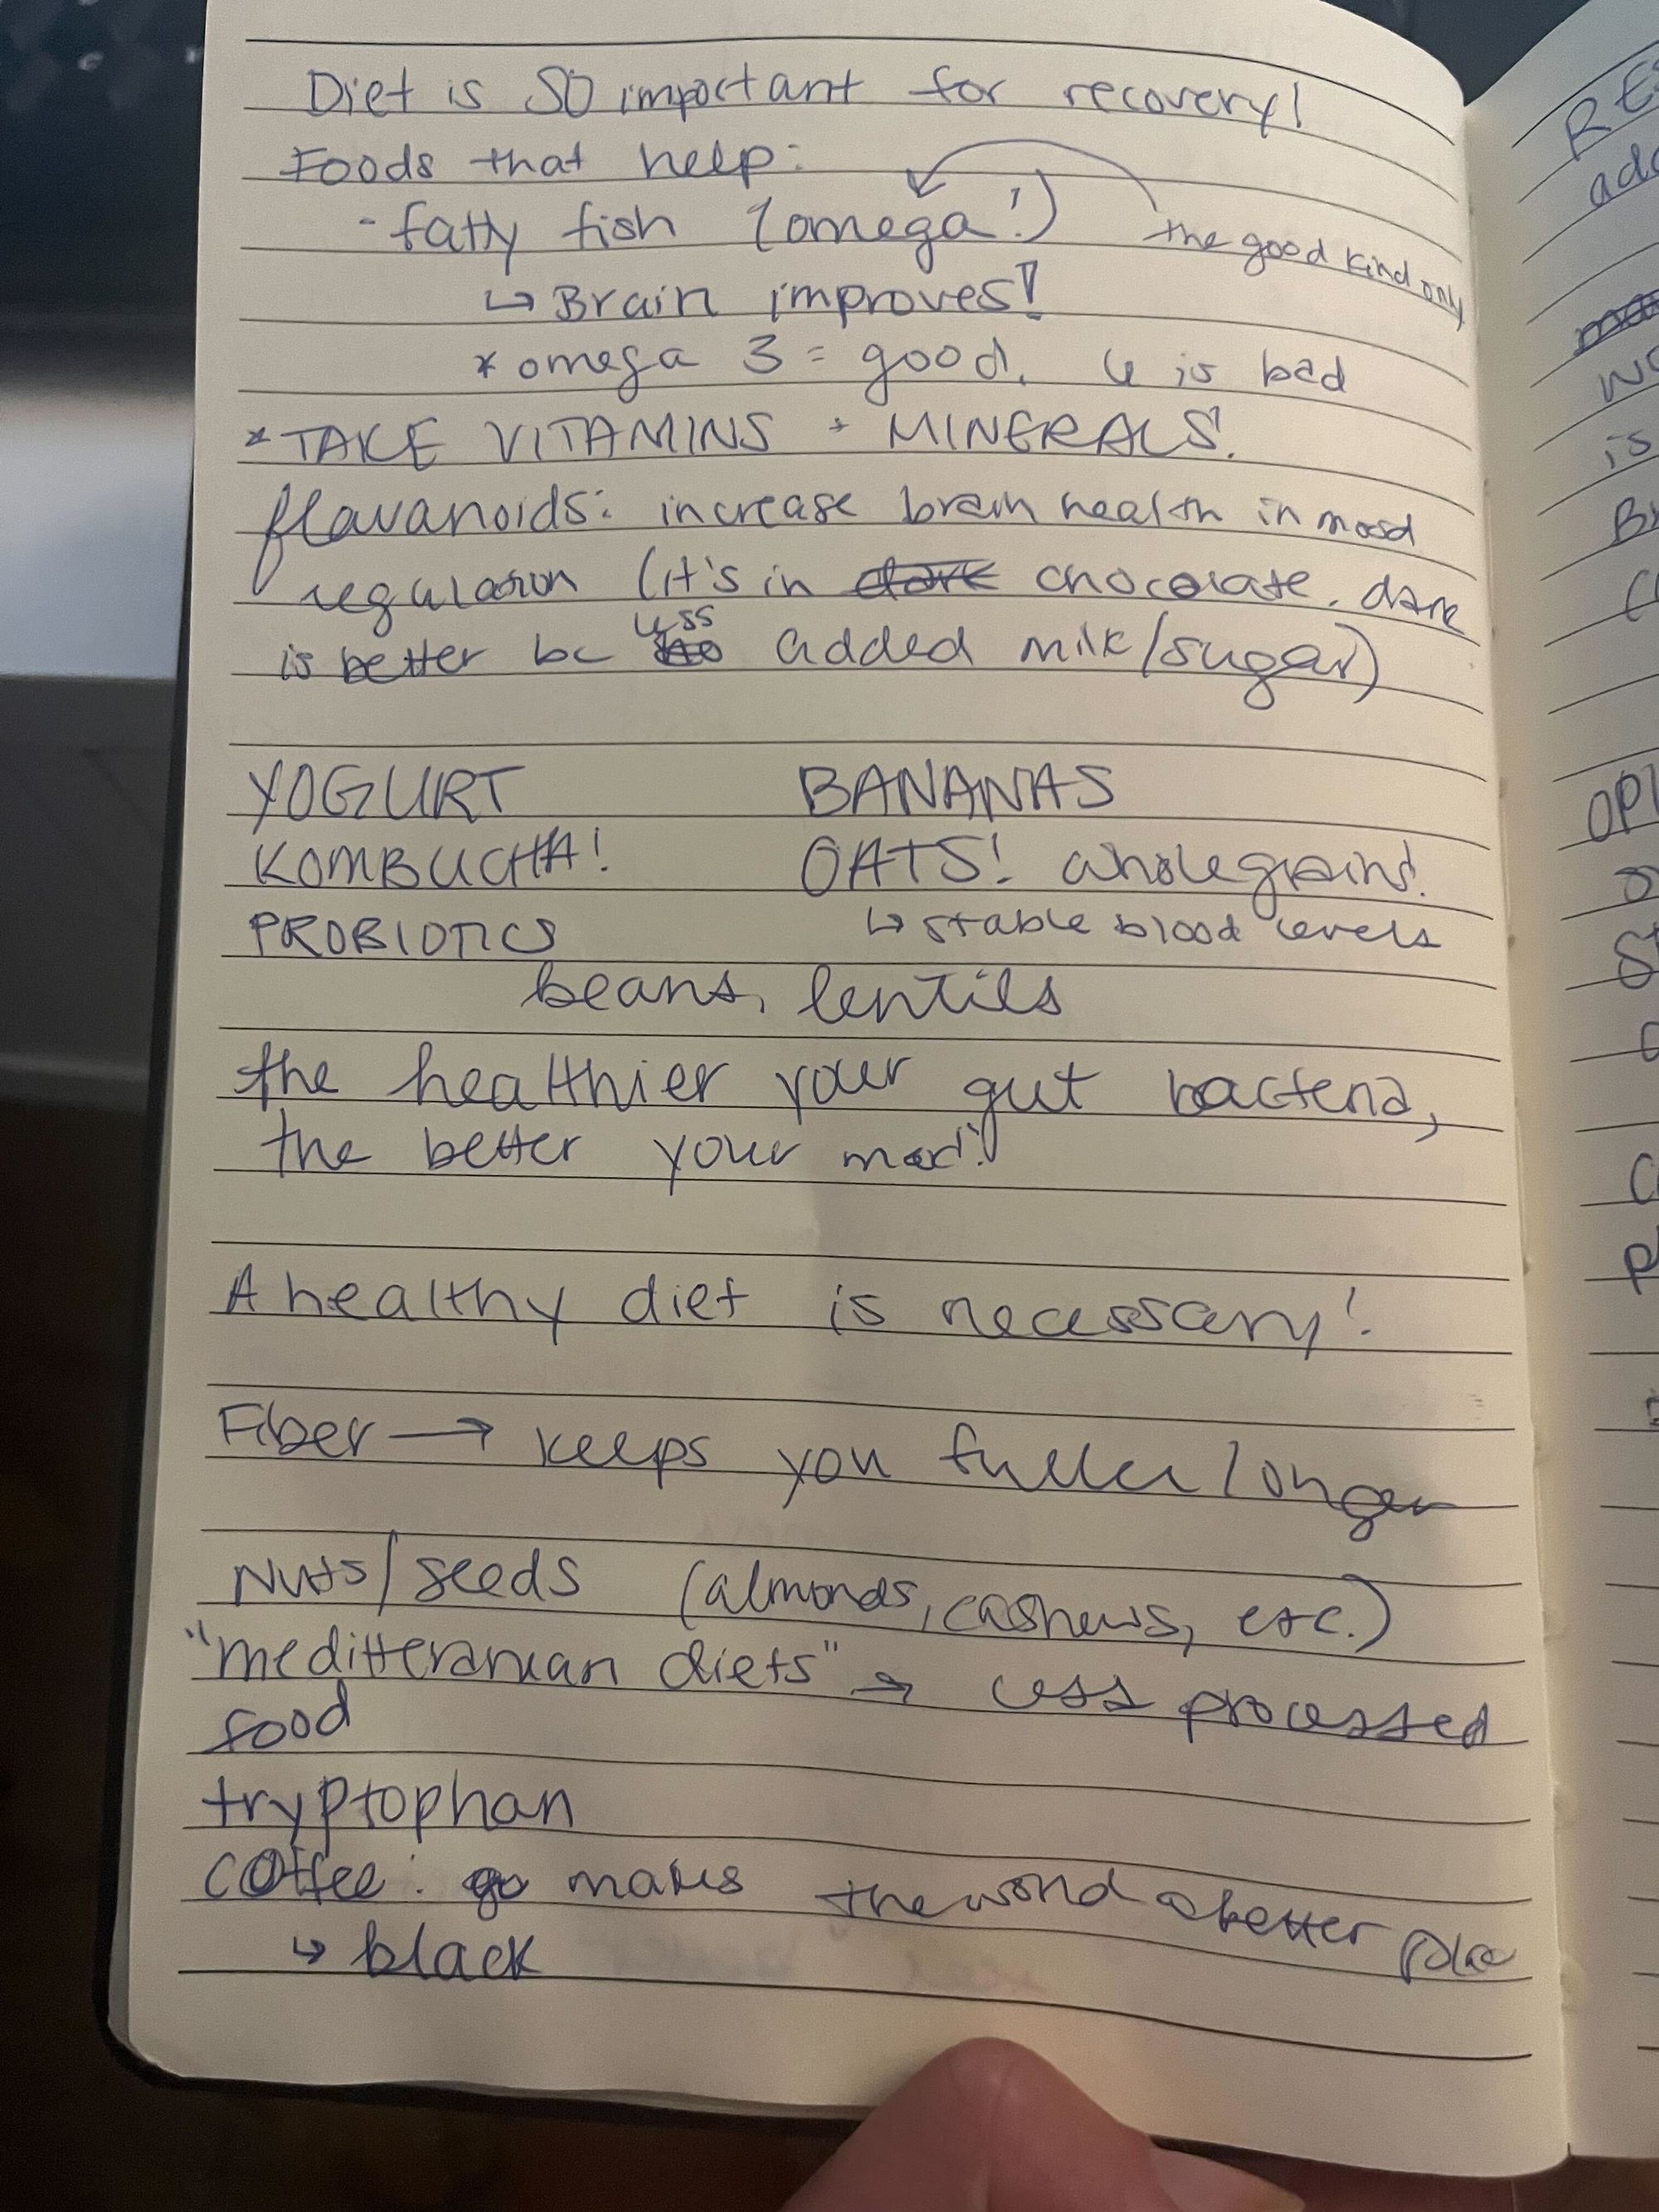 Diet is SO important for recovery!
Foods that help:
- fatty fish (omega!) the good kind only
↳ Brain improves!
* omega 3 = good. 6 is bad
* TAKE VITAMINS + MINERALS!
flavanoids: increase brain health in mood
regulation (it's in dark chocolate. dark
is better bc less added milk/sugar)
YOGURT BANANAS
KOMBUCHA! OATS! whole grains!
PROBIOTICS ↳ stable blood levels
beans, lentils
the healthier your gut bacteria,
the better your mood!
A healthy diet is necessary!
Fiber → keeps you fuller longer
Nuts/seeds (almonds, cashews, etc.)
"meditteranean diets" → less processed
food
tryptophan
coffee: go makes the world a better place
↳ black
RE
ad
is
OPI